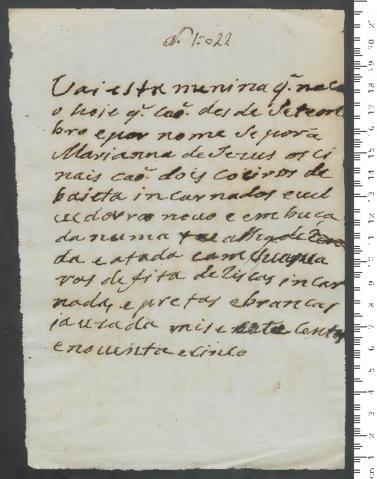 N. 1:022
Vai esta menina q. nace
o hoje q. cao. des de Setem
bro e por nome Se porá
Marianna de Jezus os ci
nais cao. dois coeiros de
baieta incarnados e
novo e embuca
da numa toalha de
da e atada com
ras de fita de Liscas incar
nadas e pretas e brancas
ja uzada mi e sete centos
e noventa e sinco